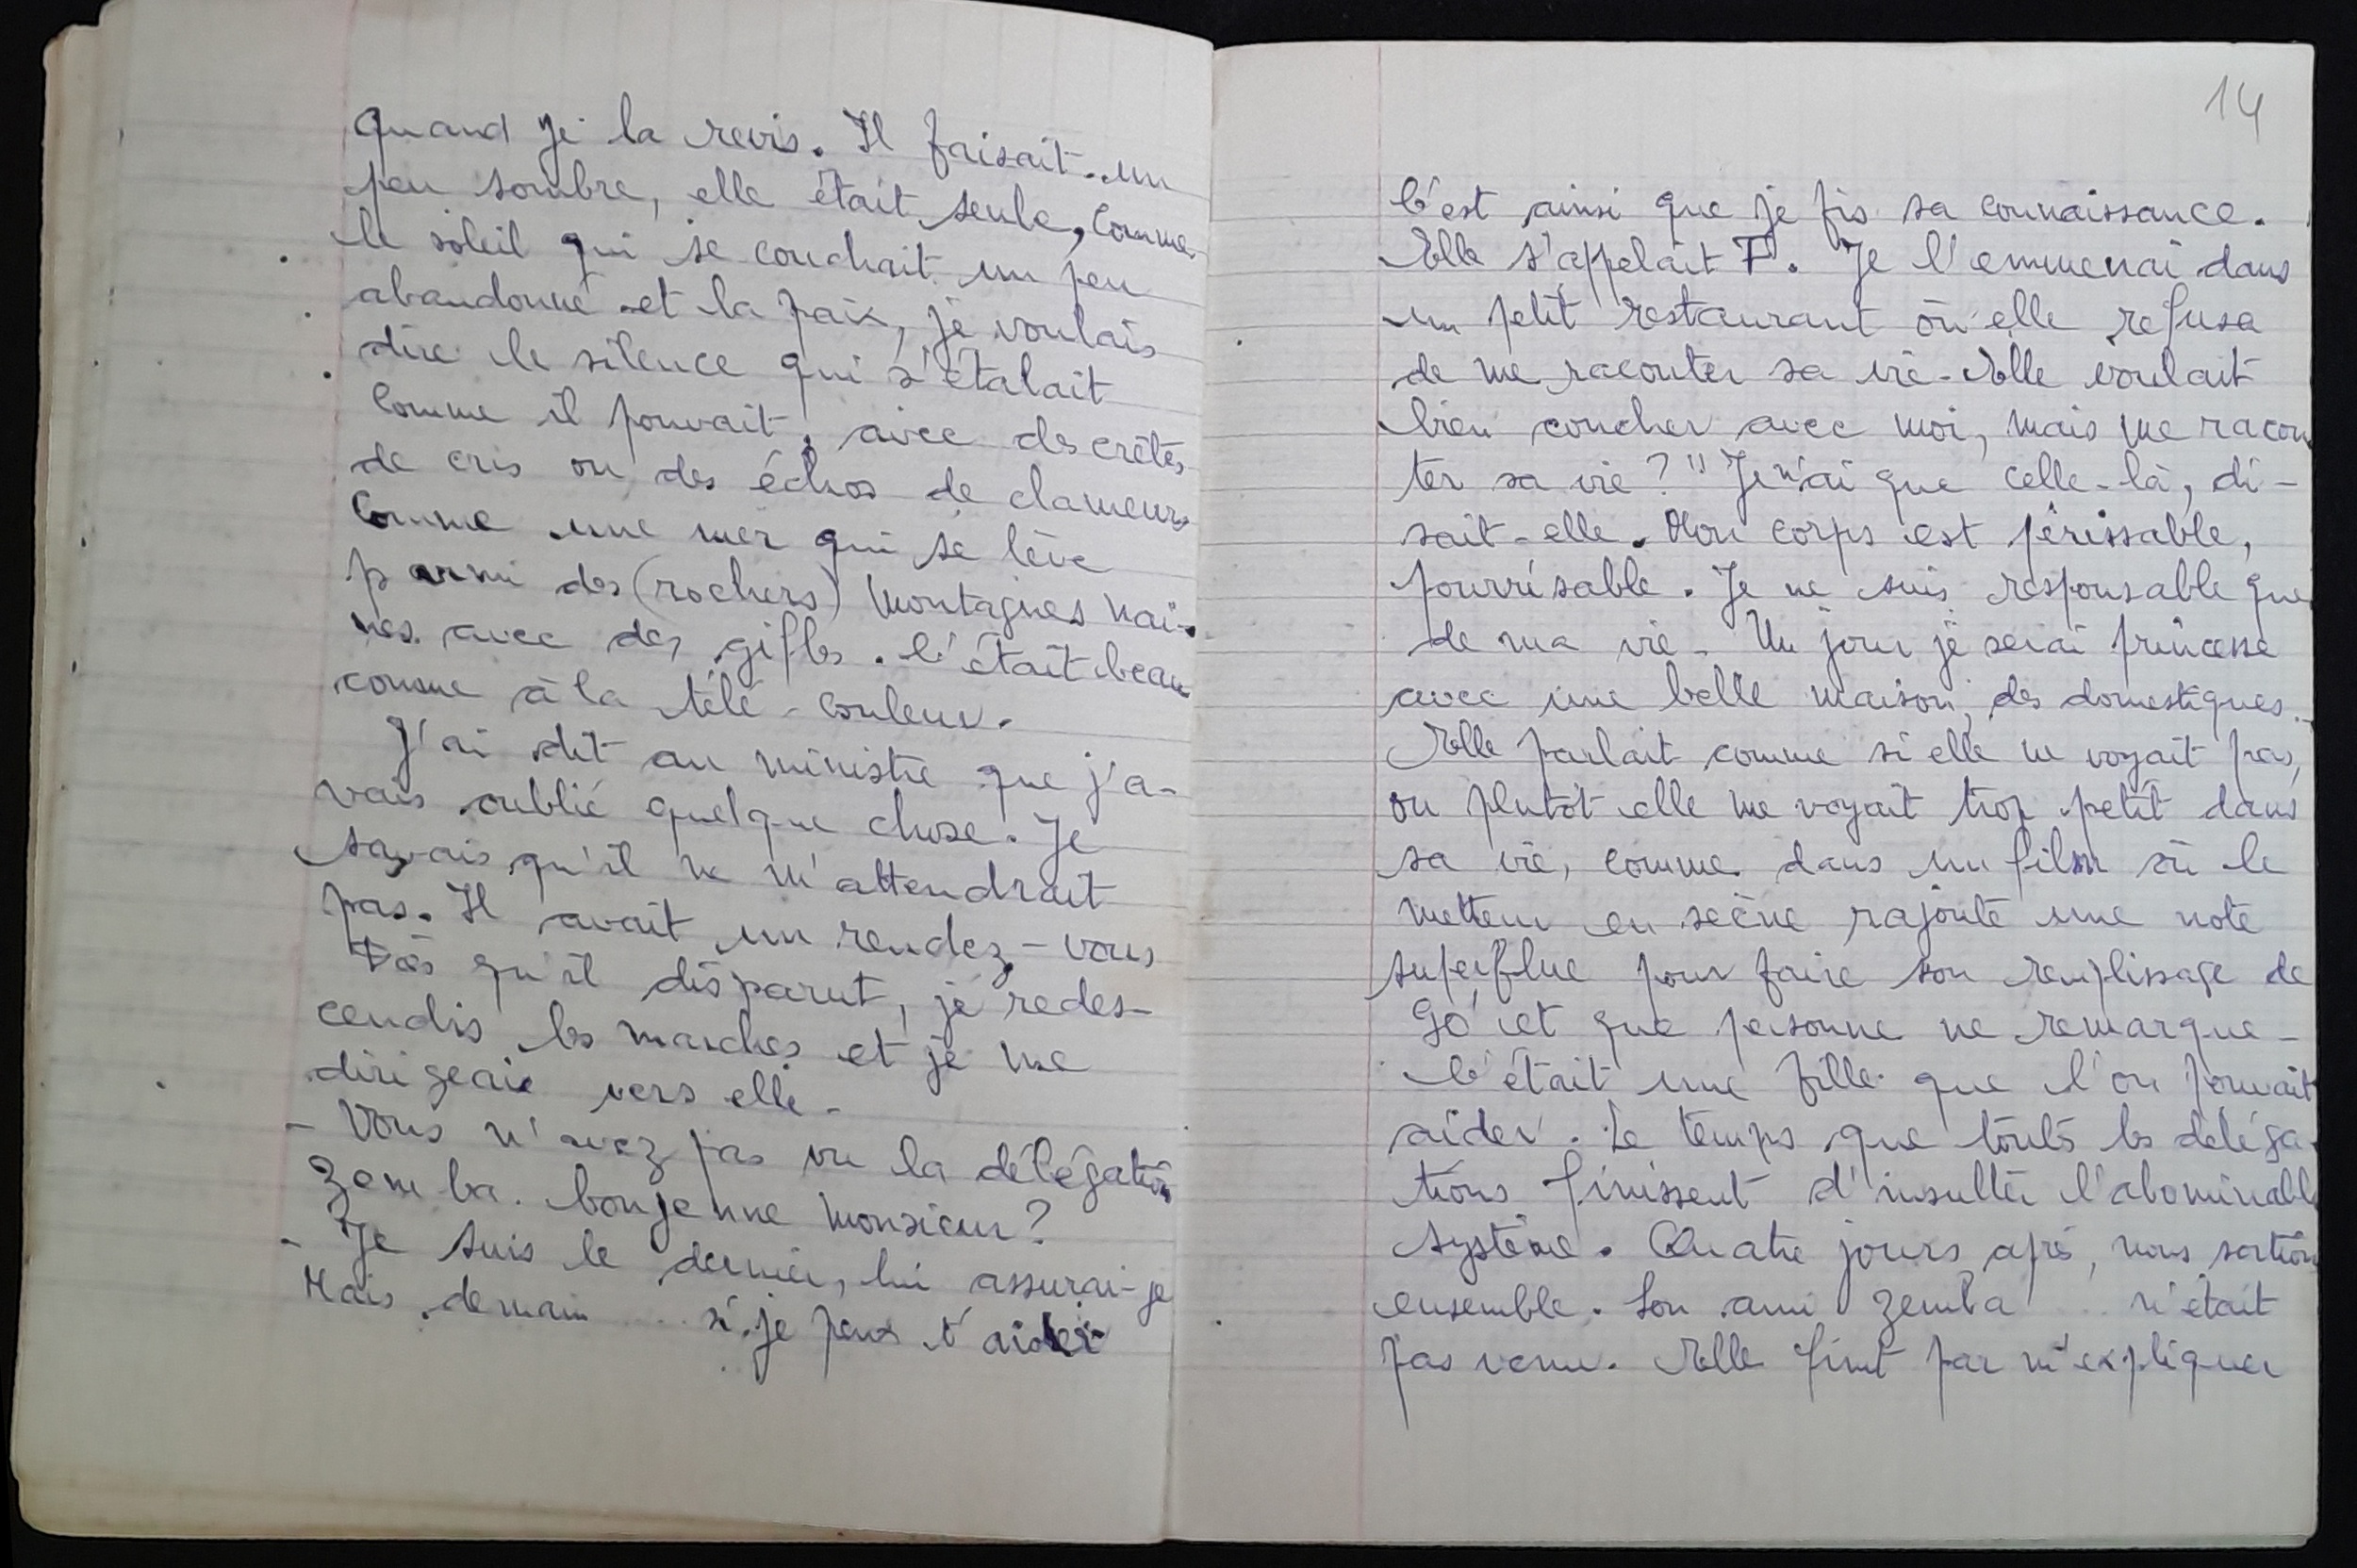 quand je la revis. Il faisait un
peu sombre, elle était seule, comme
le soleil qui se couchait un peu
abandonné et la paix, je voulais
dire le silence qui s'étalait
comme il pouvait, avec des crêtes
de cris ou des échos de clameurs
comme une mer qui se lève
parmi des (rochers) montagnes nai-
nes avec des gifles. C'était beau
comme à la télé-couleur.
J'ai dit au ministre que j'a-
vais oublié quelque chose. Je
savais qu'il ne m'attendrait
pas. Il avait un rendez-vous
Dès qu'il disparut, je redes-
cendis les marches et je me
dirigeais vers elle.
- Vous n'avez pas vu la délégation
Zemba. bonjenne monsieur?
- Je suis le dernier, lui assurai-je
Mais demain ... si je peux t'aider
14
C'est ainsi que je fis sa connaissance.
Elle s'appelait F. Je l'emmenai dans
un petit restaurant où elle refusa
de me raconter sa vie. Elle voulait
bien coucher avec moi, mais me racon
ter sa vie? "Je n'ai que celle-là, di-
sait-elle. Mon corps est périssable,
pourrisable. Je ne suis responsable que
de ma vie. Un jour je serai princesse
avec une belle maison, des domestiques..
Elle parlait comme si elle ne voyait pas,
ou plutôt elle me voyait trop petit dans
sa vie, comme dans un film où le
metteur en scène rajoute une note
superflue pour faire son remplissage de
90' et que personne ne remarque-
C'était une fille que l'on pouvait
aider. Le temps que toutes les déléga-
tions finissent d'insulter l'abominable
système. Quatre jours après, nous sortions
ensemble. Son ami Zemba n'était
pas venu. Elle finit par m'expliquer